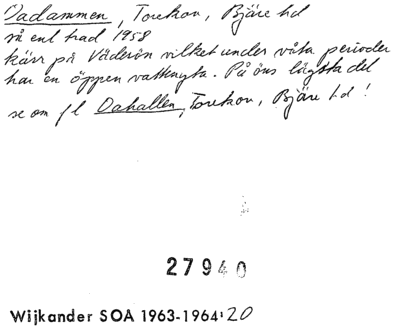 Dadammen, Torekov, Bjäre hd
så enl trad 1958
kärr på Väderön vilket under våta perioder
har en öppen vattenyta. På öns lägsta del
se om fl Dahallen, Torekov, Bjäre hd!
27940
Wijkander SOA 1963-1964:20